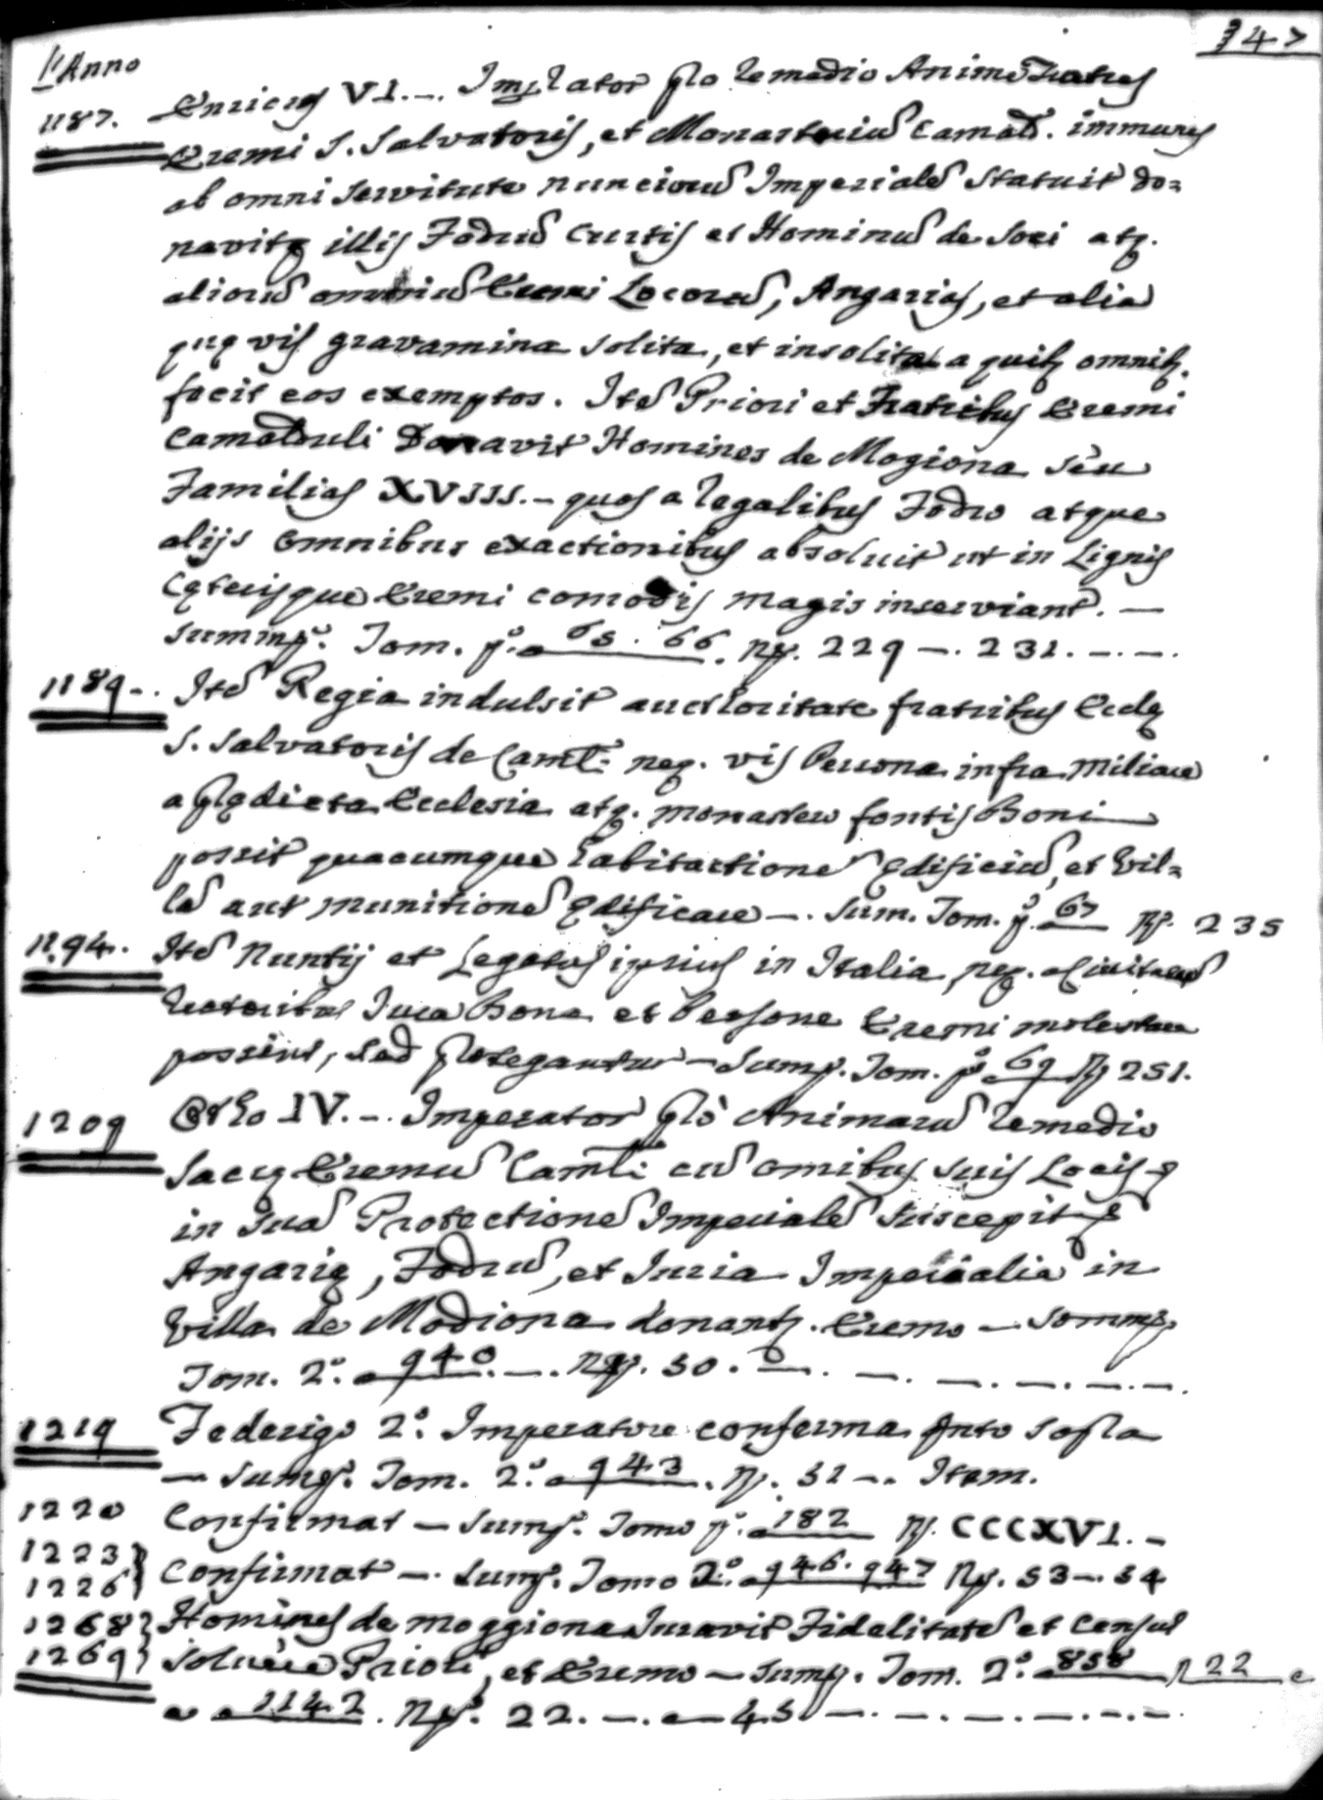 347
l'Anno
1187. Enricus VI. -. Imperator pro remedio Anime Fratres
Eremi S. Salvatoris, et Monasterium Camald. immunes
ab omni servitute nunciorum Imperialem statuit do=
navitq illis Fodrum Curtis et Hominum de Soci atq.
aliorum omnium Eremi Locorum, Angarias, et alia
quęvis gravamina solita, et insolita a quib omnib.
fecit eos exemptos. Item Priori et Fratribus Eremi
Camalduli Donavit Homines de Mogiona seu
Familias XVIII. - quos a legalibus Fodro atque
alijs omnibus exactionibus absoluit ut in Lignis
Cęterisque Eremi comodis magis inserviant. —
Summp.º Tom. p.º a 65. 66. Np. 229 -. 231. -. -.
1189 -. Item Regia indulsit auctoritate fratribus Ecclę
S. Salvatoris de Caml. neq. vis Persona infra Miliare
a prędicta Ecclesia atq. monastero fontis Boni
possit quacumque habitactione ędificium, et Vil=
lam aut munitionem ędificare -. Sum. Tom. p.º 67 Np. 235
1194. Item Nuntij et Legatus ipsius in Italia, neq. a Civitatum
Rectoribus Jura Bona et Persone Eremi molestare
possint, sed protegantur - Sump. Tom. p.º a 69 Np 251.
1209 Otho IV. -. Imperator pro Animarum remedio
Sacrę Eremum Camli cum omibus suis Locis
in sua Protectionem Imperialem suscepit
Angarię, Fodrum, et Juria Imperialia in
Villa de Modiona donant. Eremo - Sommp.
Tom. 2.º a 940. -. Np. 50. -. -. -. -. -. -.
1219 Federigo 2.º Imperatore conferma qnto sopra
— Sump.º Tom. 2.º a 943. Np. 51 -. Item.
1220 Confirmat - Sump.º Tomo p.º a 182 Np. CCCXVI. -
1223 }
1226 } Confirmat -. Sump.º Tomo 2.º a 946. 947 Np. 53 -. 54
1268 } Homines de Moggiona Juravit Fidelitatem et Censum
1269 } Soluere Priori, et Eremo - Sump. Tom. 2.º a 858 n 22 e
a 1142. Np.º 22. -. a - 45 -. -. -. -. -. -.